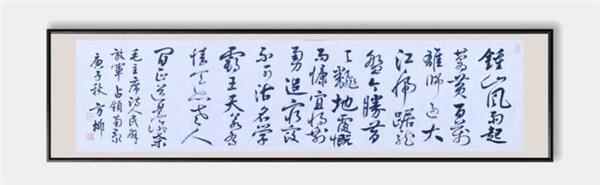 鍾山风雨起
蒼黄百万
雄师过大
江虎踞龍
盤今勝昔
天翻地覆慨
而慷宜将剩
勇追穷寇
不可沽名学
霸王天若有
情天亦老人
间正道是滄桑
毛主席诗人民解
放军占领南京
庚子秋方柳